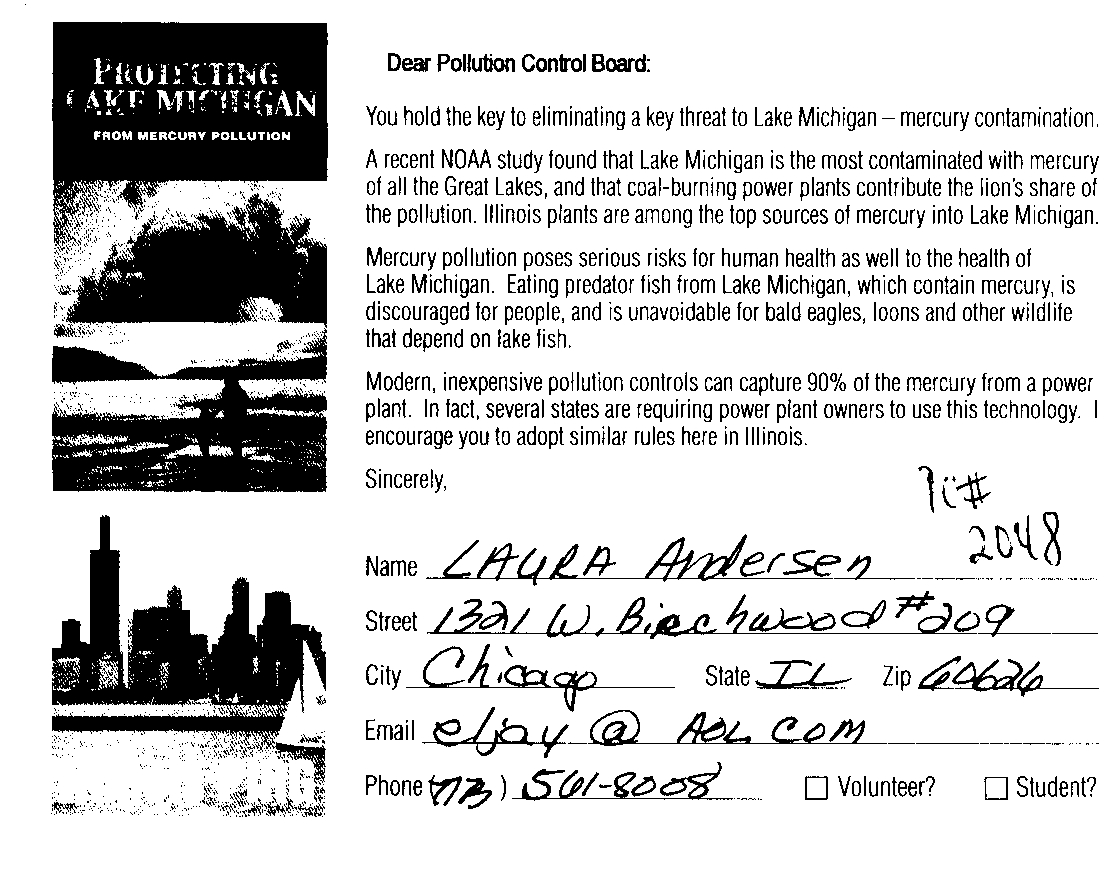 PROTECTING
LAKE MICHIGAN
FROM MERCURY POLLUTION
Dear Pollution Control Board:
You hold the key to eliminating a key threat to Lake Michigan – mercury contamination.
A recent NOAA study found that Lake Michigan is the most contaminated with mercury
of all the Great Lakes, and that coal-burning power plants contribute the lion's share of
the pollution. Illinois plants are among the top sources of mercury into Lake Michigan.
Mercury pollution poses serious risks for human health as well to the health of
Lake Michigan. Eating predator fish from Lake Michigan, which contain mercury, is
discouraged for people, and is unavoidable for bald eagles, loons and other wildlife
that depend on lake fish.
Modern, inexpensive pollution controls can capture 90% of the mercury from a power
plant. In fact, several states are requiring power plant owners to use this technology. I
encourage you to adopt similar rules here in Illinois.
Sincerely,
2048
Name LAURA Andersen
Street 1321 W. Birchwood #209
City Chicago State IL Zip 60626
Email eljay @ AOL COM
Phone (773) 561-8008 Volunteer? Student?